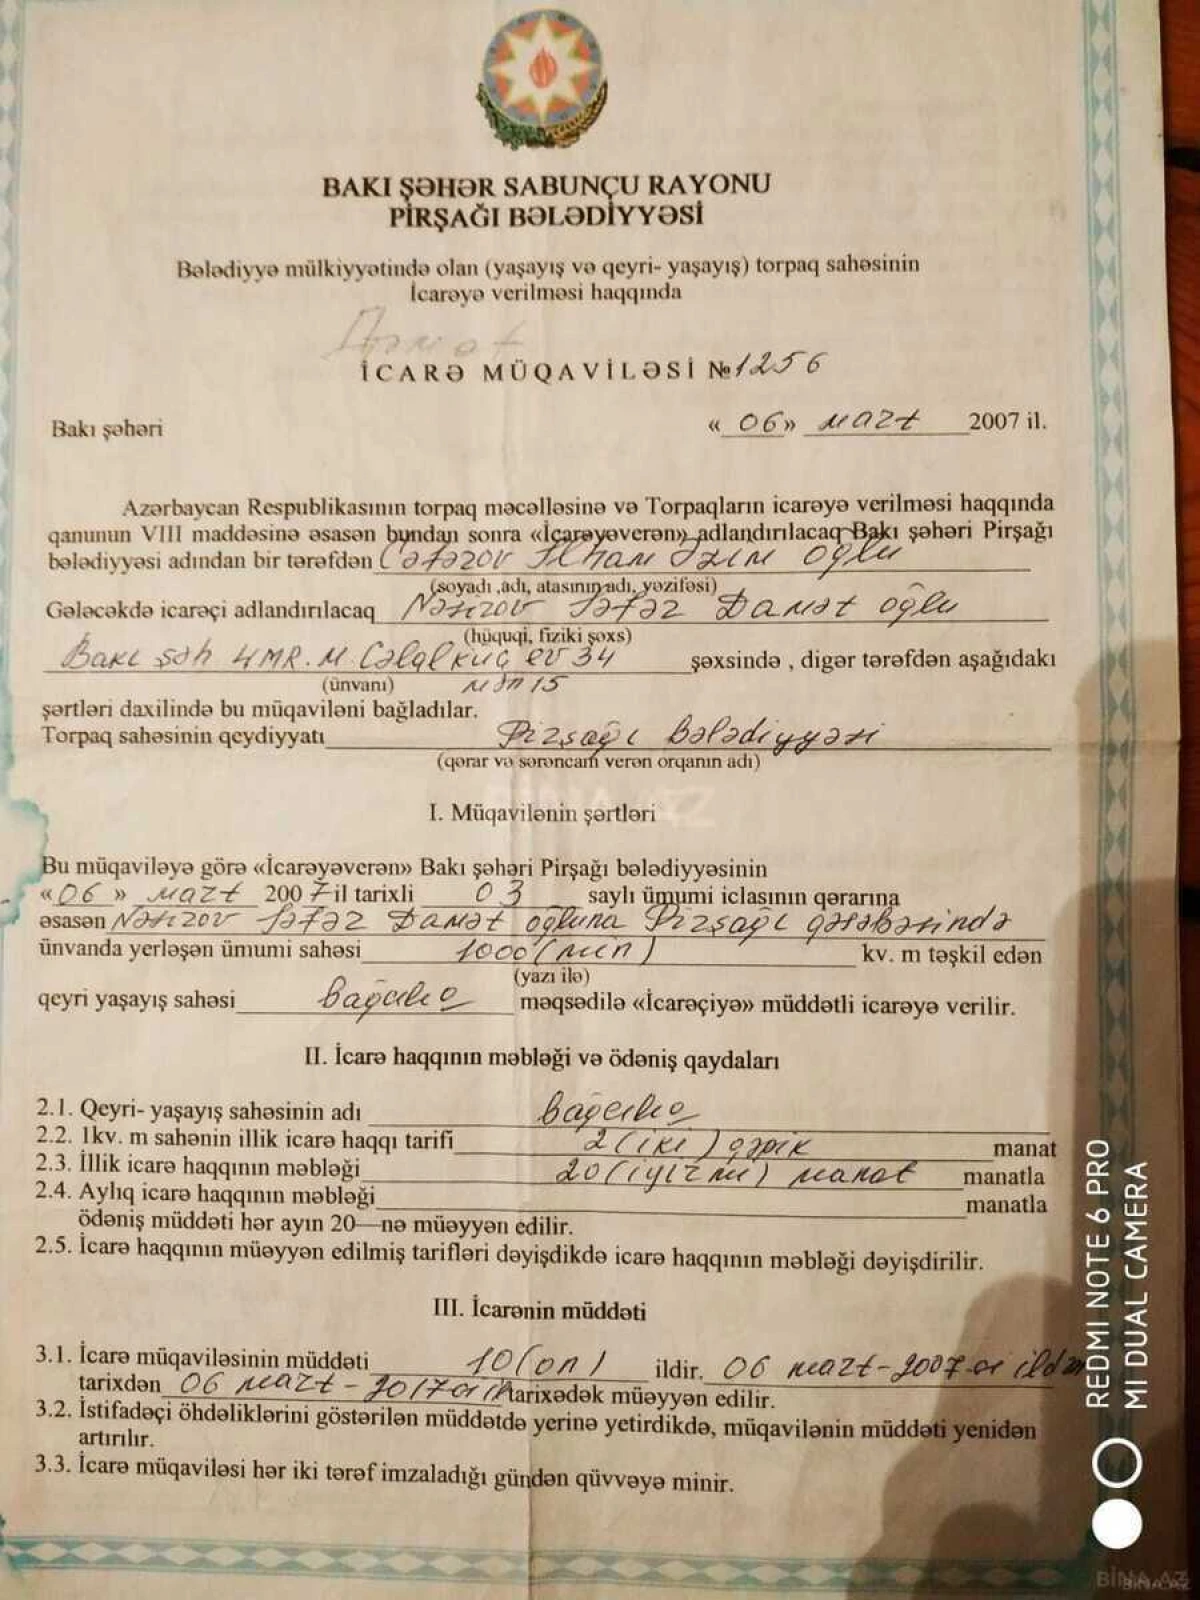 BAKI ŞƏHƏR SABUNÇU RAYONU
PİRŞAĞI BƏLƏDİYYƏSİ
Bələdiyyə mülkiyyətində olan (yaşayış və qeyri- yaşayış) torpaq sahəsinin
İcarəyə verilməsi haqqında
İCARƏ MÜQAVİLƏSİ № 1256
Bakı şəhəri « 06 » март 2007 il.
Azərbaycan Respublikasının torpaq məcəlləsinə və Torpaqların icarəyə verilməsi haqqında
qanunun VIII maddəsinə əsasən bundan sonra «İcarəyəverən» adlandırılacaq Bakı şəhəri Pirşağı
bələdiyyəsi adından bir tərəfdən Cəfərov İlham Əzim oğlu
(soyadı ,adı, atasının adı, vəzifəsi)
Gələcəkdə icarəçi adlandırılacaq Nəsirov Səfər Damət oğlu
(hüquqi, fiziki şəxs)
Bakı şəh 4MR. M. Cəlal küç ev 34 şəxsində , digər tərəfdən aşağıdakı
(ünvanı) 15
şərtləri daxilində bu müqaviləni bağladılar.
Torpaq sahəsinin qeydiyyatı Pirşağı bələdiyyəsi
(qərar və sərəncam verən orqanın adı)
I. Müqavilənin şərtləri
Bu müqaviləyə görə «İcarəyəverən» Bakı şəhəri Pirşağı bələdiyyəsinin
« 06 » март 2007 il tarixli 03 saylı ümumi iclasının qərarına
əsasən Nəsirov Səfər Damət oğluna Pirşağı qəsəbəsində
ünvanda yerləşən ümumi sahəsi 1000 (min) kv. m təşkil edən
(yazı ilə)
qeyri yaşayış sahəsi bağçılıq məqsədilə «İcarəçiyə» müddətli icarəyə verilir.
II. İcarə haqqının məbləği və ödəniş qaydaları
2.1. Qeyri- yaşayış sahəsinin adı bağçılıq
2.2. 1kv. m sahənin illik icarə haqqı tarifi 2 (iki) qəpik manat
2.3. İllik icarə haqqının məbləği 20 (iyirmi) manat manatla
2.4. Aylıq icarə haqqının məbləği manatla
ödəniş müddəti hər ayın 20—nə müəyyən edilir.
2.5. İcarə haqqının müəyyən edilmiş tarifləri dəyişdikdə icarə haqqının məbləği dəyişdirilir.
III. İcarənin müddəti
3.1. İcarə müqaviləsinin müddəti 10 (on) ildir. 06 март-2007-ci ildən
tarixdən 06 март-2017-ci il tarixədək müəyyən edilir.
3.2. İstifadəçi öhdəliklərini göstərilən müddətdə yerinə yetirdikdə, müqavilənin müddəti yenidən
artırılır.
3.3. İcarə müqaviləsi hər iki tərəf imzaladığı gündən qüvvəyə minir.
REDMI NOTE 6 PRO
MI DUAL CAMERA
BİNA.AZ